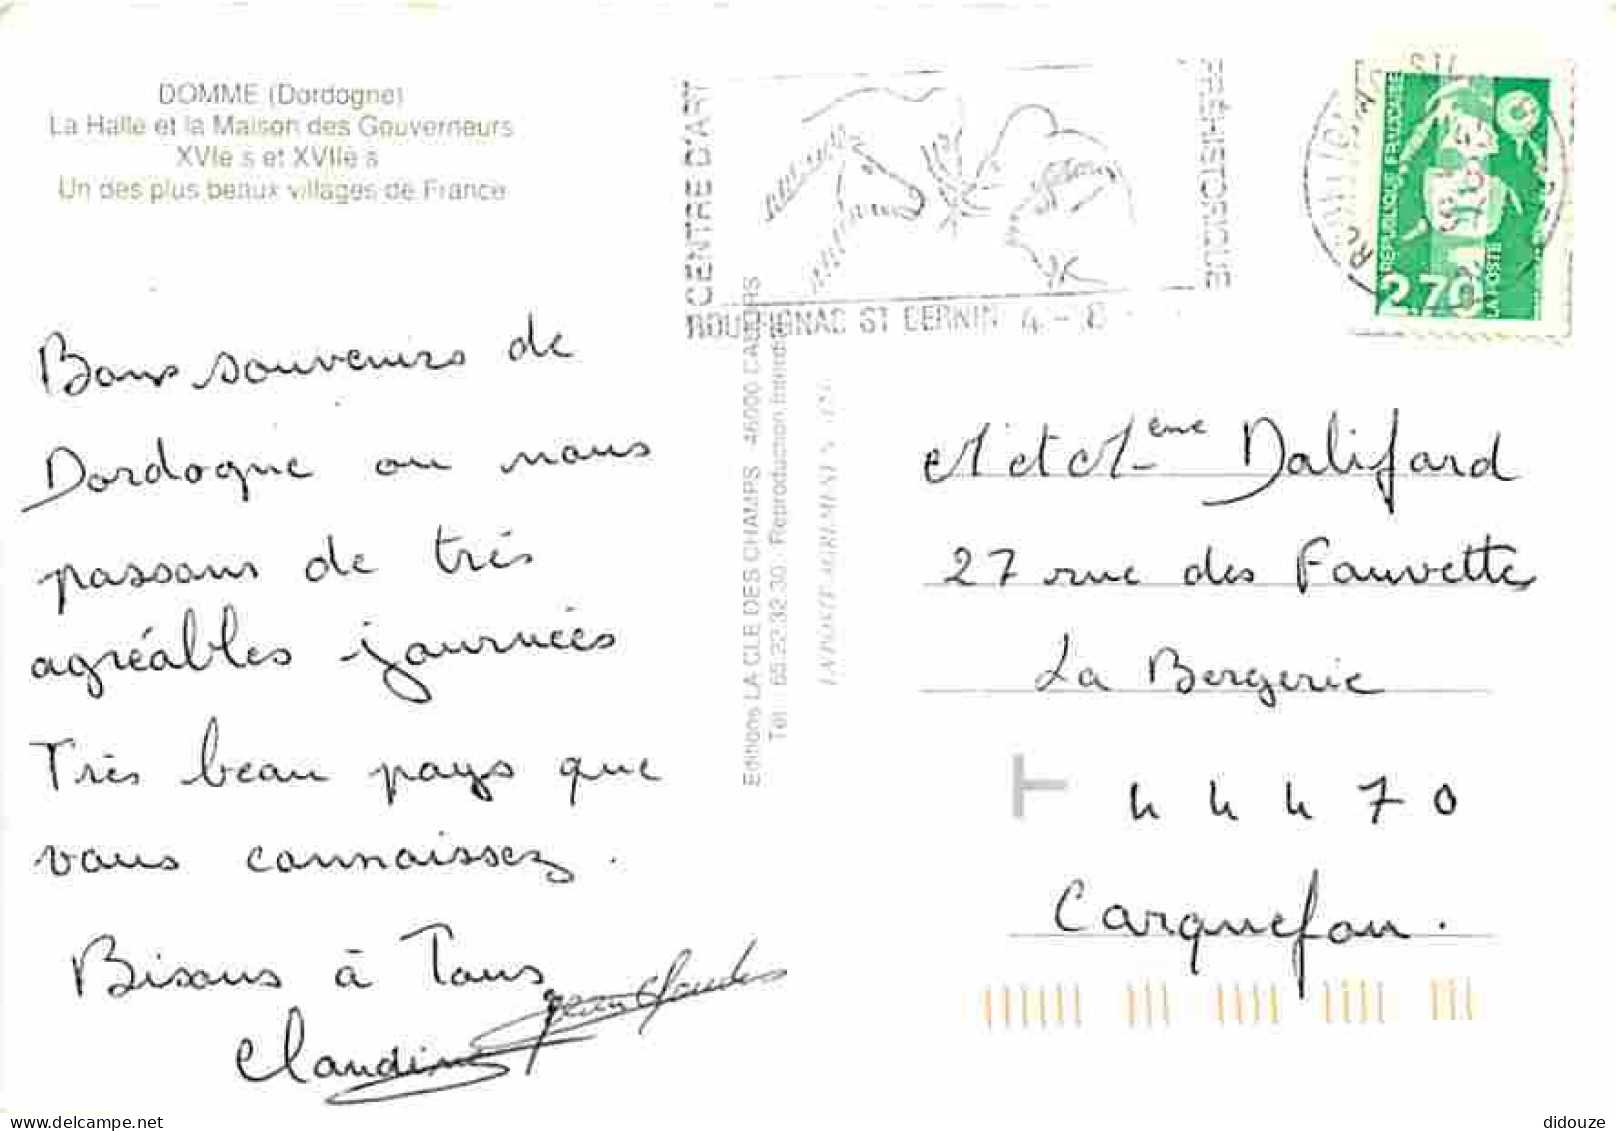 DOMME (Dordogne)
La Halle et la Maison des Gouverneurs
XVIe s et XVIIe s
Un des plus beaux villages de France
Bons souvenirs de
Dordogne ou nous
passons de très
agréables journées
Très beau pays que
vous connaissez.
Bisous à Tous
Claudine
Jean Claude
Editions LA CLE DES CHAMPS - 46000 CAHORS
Tél : 65.22.32.30 - Reproduction interdite
CENTRE D'ART
PREHISTORIQUE
ROUFFIGNAC ST CERNIN
REPUBLIQUE FRANCAISE
2,70
LA POSTE
M et Mme Dalifard
27 rue des Fauvettes
La Bergerie
44470
Carquefou.
didouze